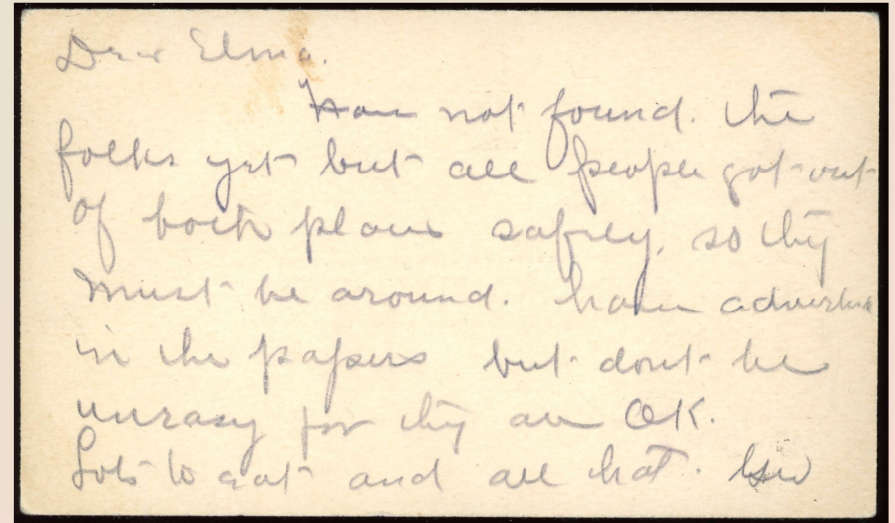 Dear Elma.
Have not found the
folks yet but all people got out
of both places safley, so they
must be around. have advertised
in the papers but dont be
uneasy for they are OK.
Lots to eat and all that.